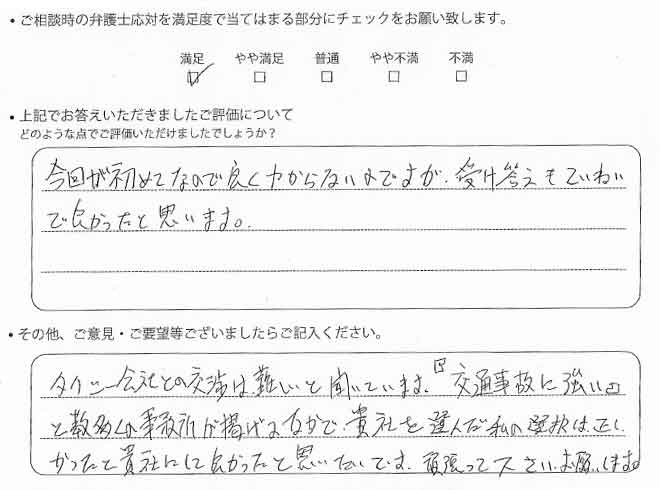 ・ご相談時の弁護士応対を満足度で当てはまる部分にチェックをお願い致します。
満足 やや満足 普通 やや不満 不満
・上記でお答えいただきましたご評価について
どのような点でご評価いただけましたでしょうか？
今回が初めてなので良くわからないのですが、受け答えもていねい
で良かったと思います。
・その他、ご意見・ご要望等ございましたらご記入ください。
タクシー会社との交渉は難しいと聞いています。『交通事故に強い』
と数多くの事務所が掲げるなかで、貴社を選んだ私の選択は正し
かったと貴社にして良かったと思いたいです。頑張って下さい。お願いします。